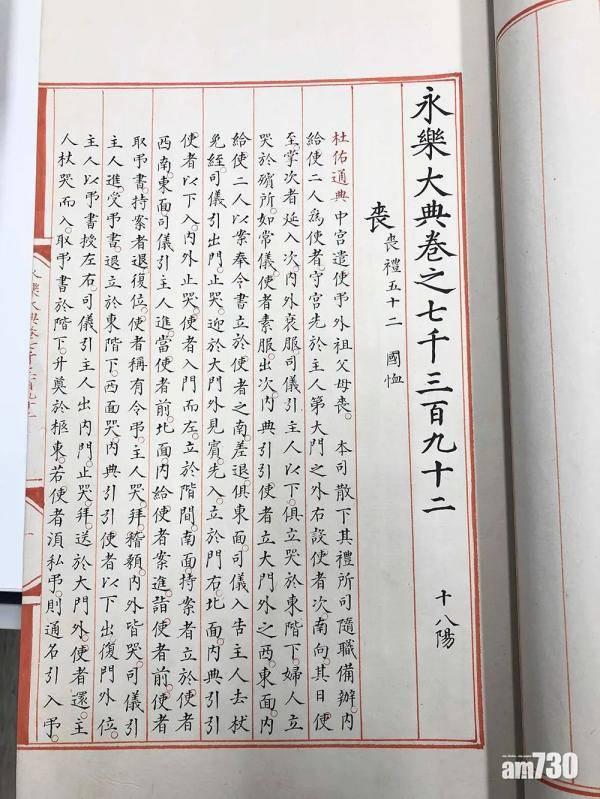 永樂大典卷之七千三百九十二 十八陽
喪 喪禮五十二 國恤
杜佑通典中宫遣使弔外祖父母喪。 本司散下其禮所司隨職備辦。内
給使二人為使者。守宫先於主人第大門之外右設使者次南向。其日使
至。掌次者延入次。内外衰服。司儀引主人以下。俱立哭於東階下。婦人立
哭於殯所。如常儀。使者素服。出次。内典引引使者立大門外之西。東面。内
給使二人以案奉令書立於使者之南。差退。俱東面。司儀入告主人去杖
免絰。司儀引出門。止哭。迎於大門外。見賓。先入。立於門右。北面。内典引引
使者以下入。内外止哭。使者入門而左。立於階間。南面。持案者立於使者
西南。東面。司儀引主人進當使者前。北面。内給使者案進詣使者前。使者
取弔書。持案者退復位。使者稱有令弔。主人哭拜稽顙。内外皆哭。司儀引
主人進。受弔書。退立於東階下。西面哭。内典引引使者以下出復門外位。
主人以弔書授左右。司儀引主人出内門。止哭。拜送於大門外。使者還。主
人杖哭而入。取弔書於階下。升奠於柩東。若使者須私弔。則通名引入弔。
am730